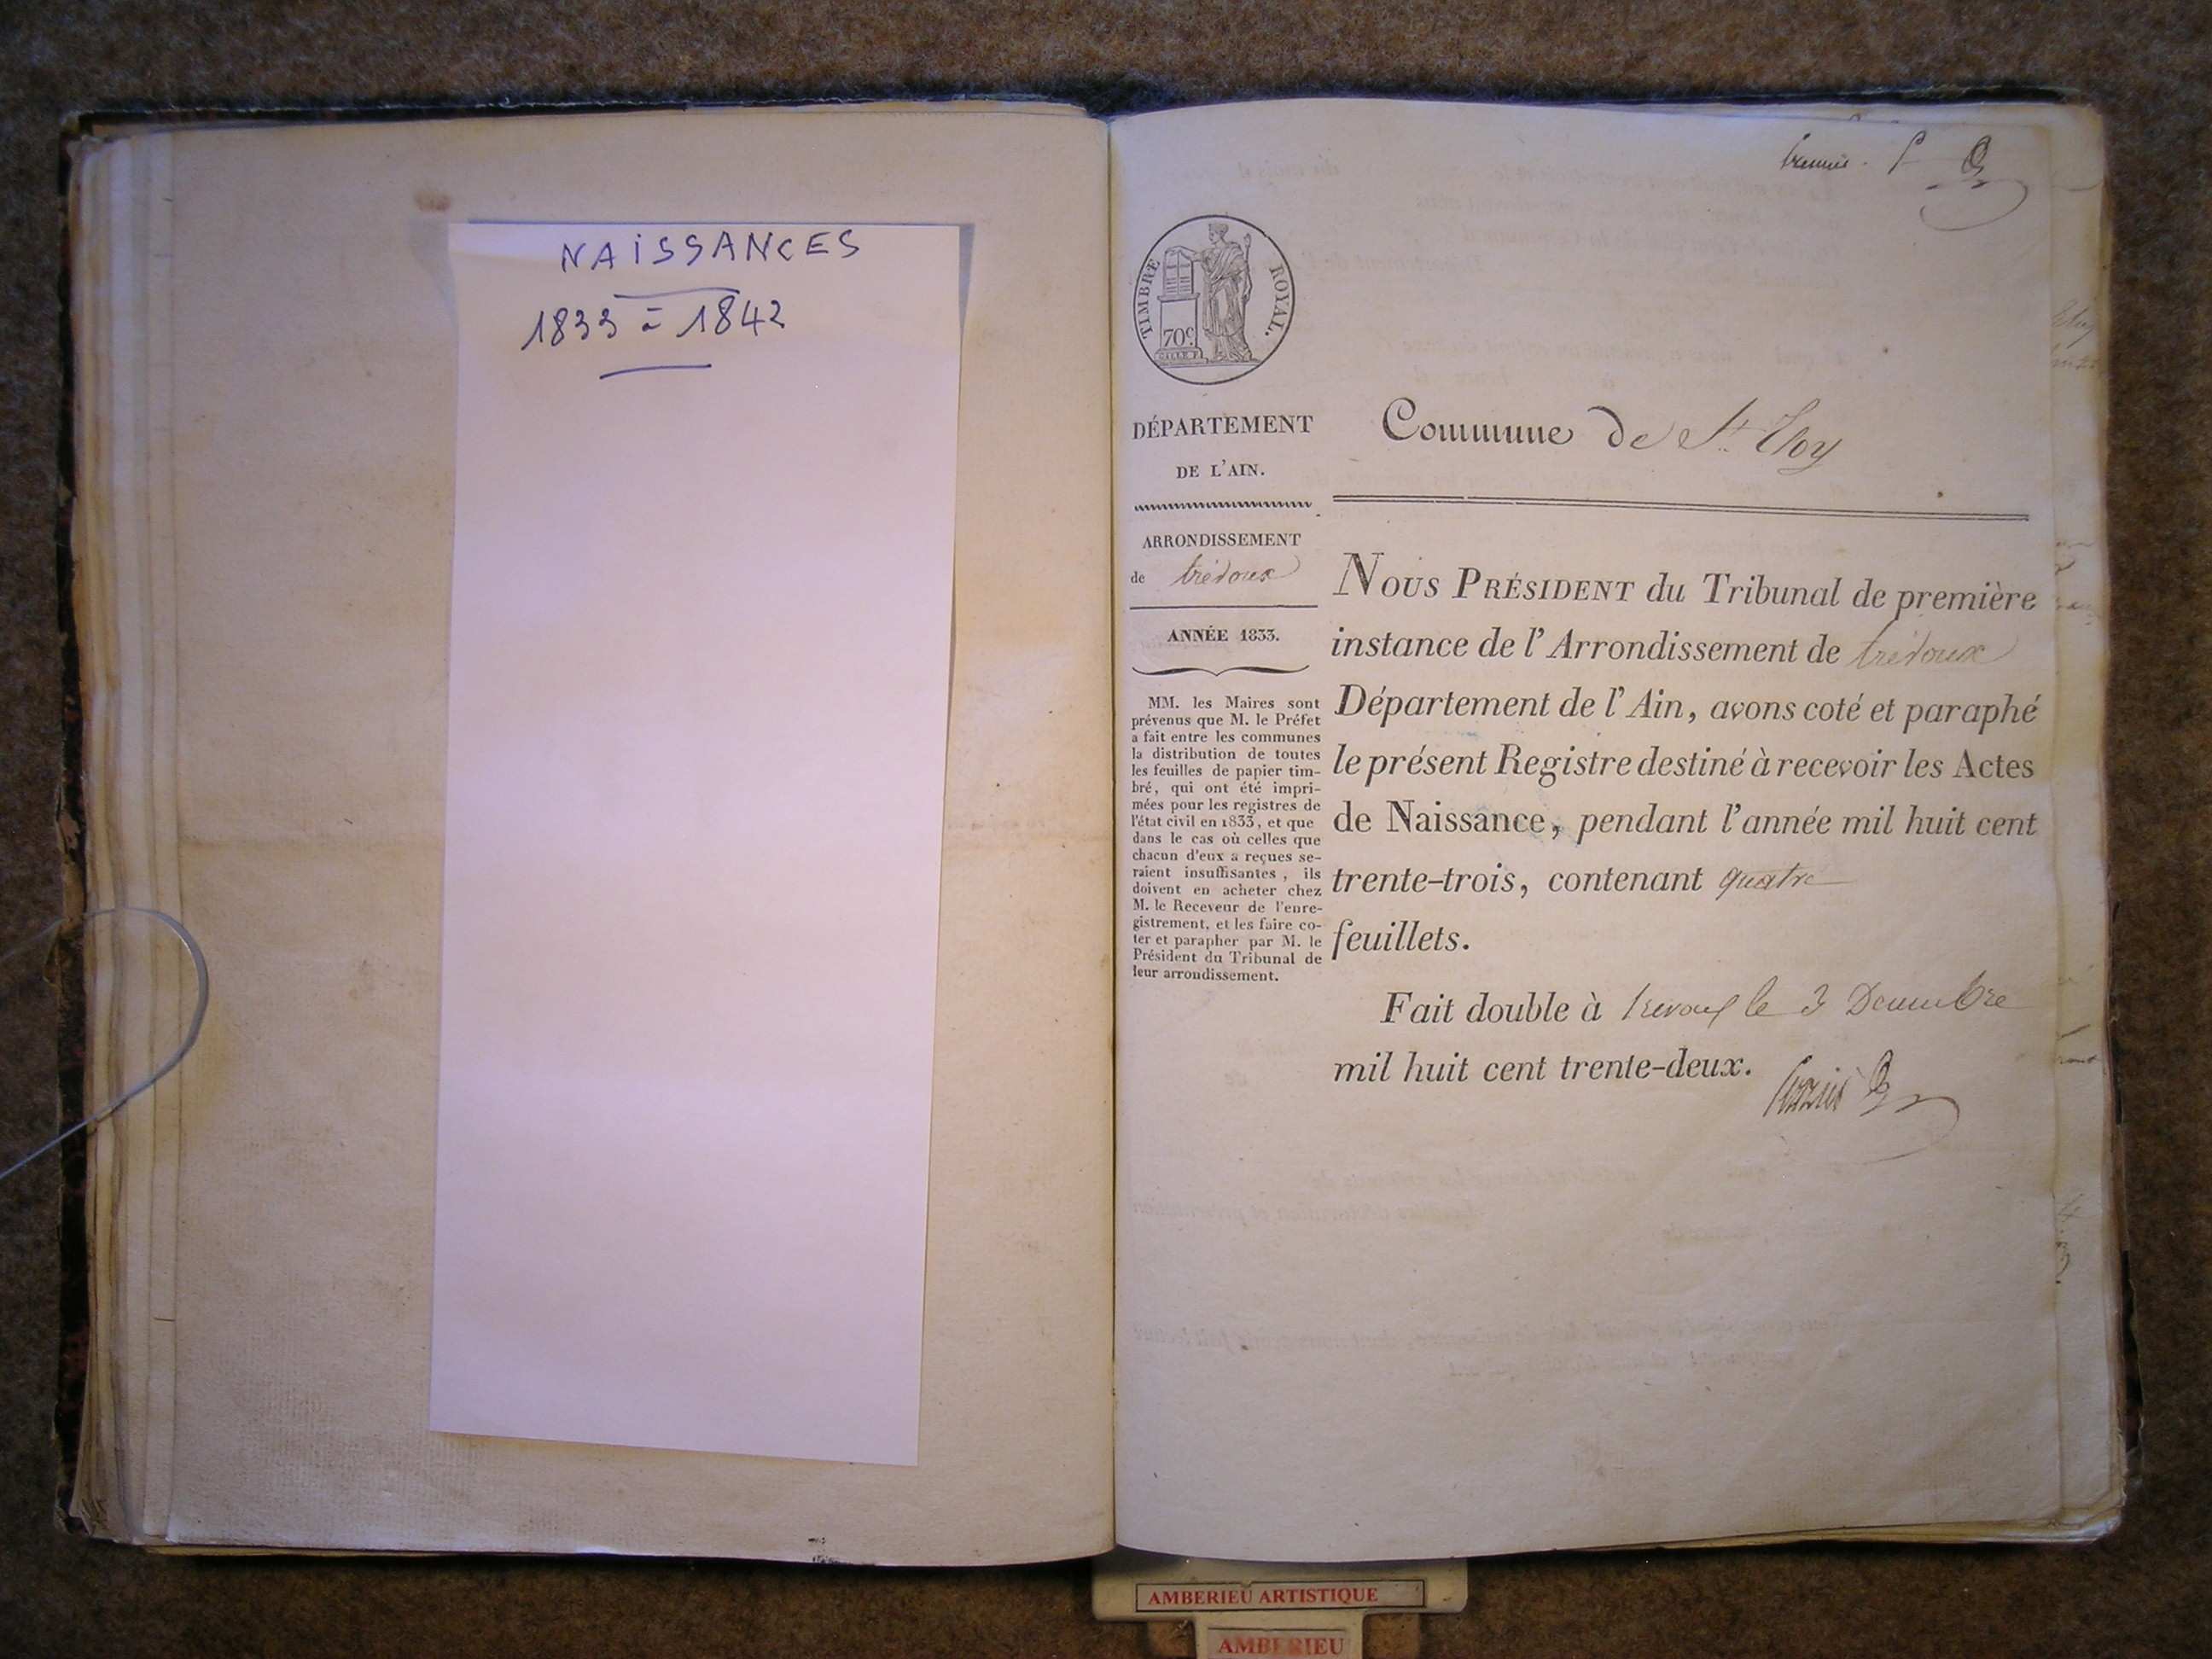 NAISSANCES
1833 à 1842
TIMBRE ROYAL.
70c.
DÉPARTEMENT
DE L'AIN.
ARRONDISSEMENT
de trévoux
ANNÉE 1833.
MM. les Maires sont
prévenus que M. le Préfet
a fait entre les communes
la distribution de toutes
les feuilles de papier tim-
bré, qui ont été impri-
mées pour les registres de
l'état civil en 1833, et que
dans le cas où celles que
chacun d'eux a reçues se-
raient insuffisantes, ils
doivent en acheter chez
M. le Receveur de l'enre-
gistrement, et les faire co-
ter et parapher par M. le
Président du Tribunal de
leur arrondissement.
Commune de St. Eloy
NOUS PRÉSIDENT du Tribunal de première
instance de l'Arrondissement de trévoux
Département de l'Ain, avons coté et paraphé
le présent Registre destiné à recevoir les Actes
de Naissance, pendant l'année mil huit cent
trente-trois, contenant quatre
feuillets.
Fait double à trevoux le 3 Decembre
mil huit cent trente-deux.
AMBERIEU ARTISTIQUE
AMBERIEU